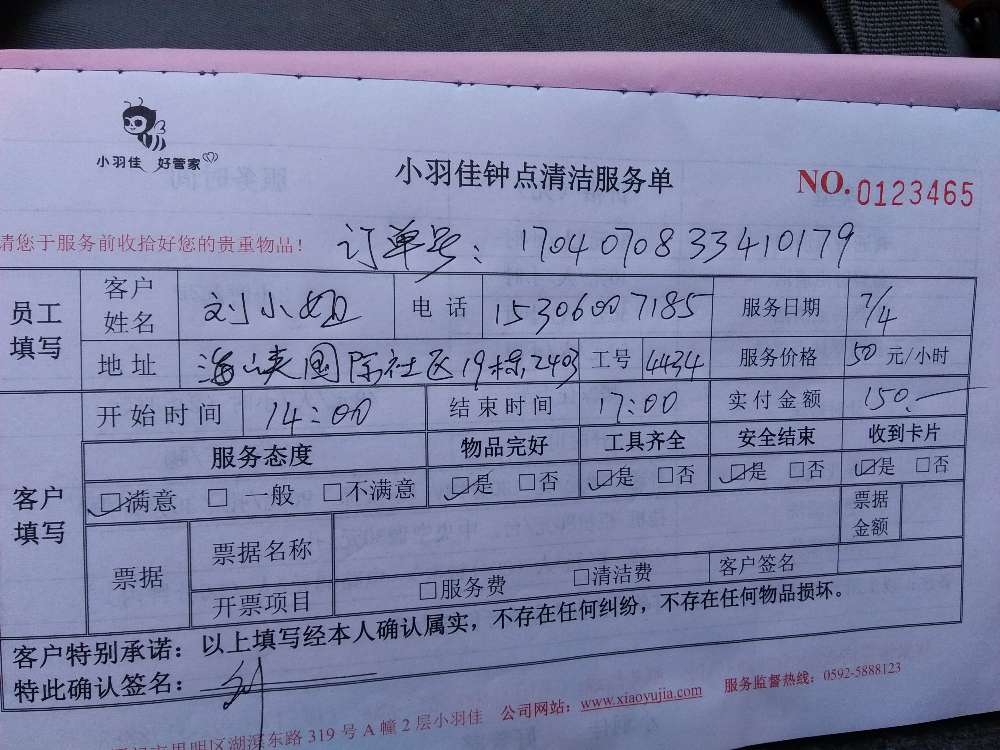 小羽佳 好管家
小羽佳钟点清洁服务单
NO. 0123465
请您于服务前收拾好您的贵重物品！
订单号：1704070833410179
员工填写 客户姓名 刘小姐 电话 15306007185 服务日期 7/4
地址 海峡国际社区19栋2403 工号 4434 服务价格 50 元/小时
客户填写 开始时间 14:00 结束时间 17:00 实付金额 150.—
服务态度 物品完好 工具齐全 安全结束 收到卡片
☑满意 □ 一般 □不满意 ☑是 □否 ☑是 □否 ☑是 □否 ☑是 □否
票据 票据名称 票据金额
开票项目 □服务费 □清洁费 客户签名
客户特别承诺：以上填写经本人确认属实，不存在任何纠纷，不存在任何物品损坏。
特此确认签名：刘
思明区湖滨东路 319 号 A 幢 2 层小羽佳 公司网站：www.xiaoyujia.com 服务监督热线：0592-5888123